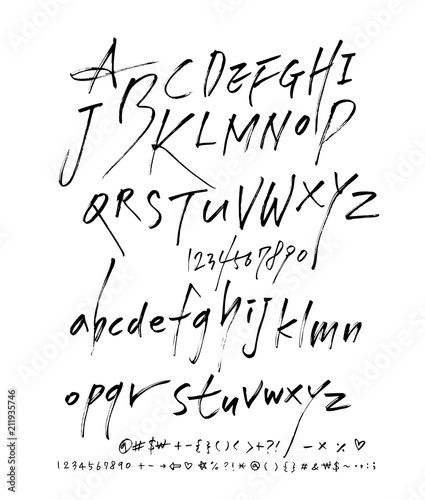 A B C D E F G H I
J K L M N O P
Q R S T U V W X Y Z
1 2 3 4 5 6 7 8 9 0
a b c d e f g h i j k l m n
o p q r s t u v w x y z
@ # $ ₩ + - { } ( ) < > + ? ! - × % ♡
1 2 3 4 5 6 7 8 9 0 + - → ⇦ ♡ ☆ % ? ! * @ ( ) { } # & ₩ $ ~ . , : ;
Adobe Stock | #211935746